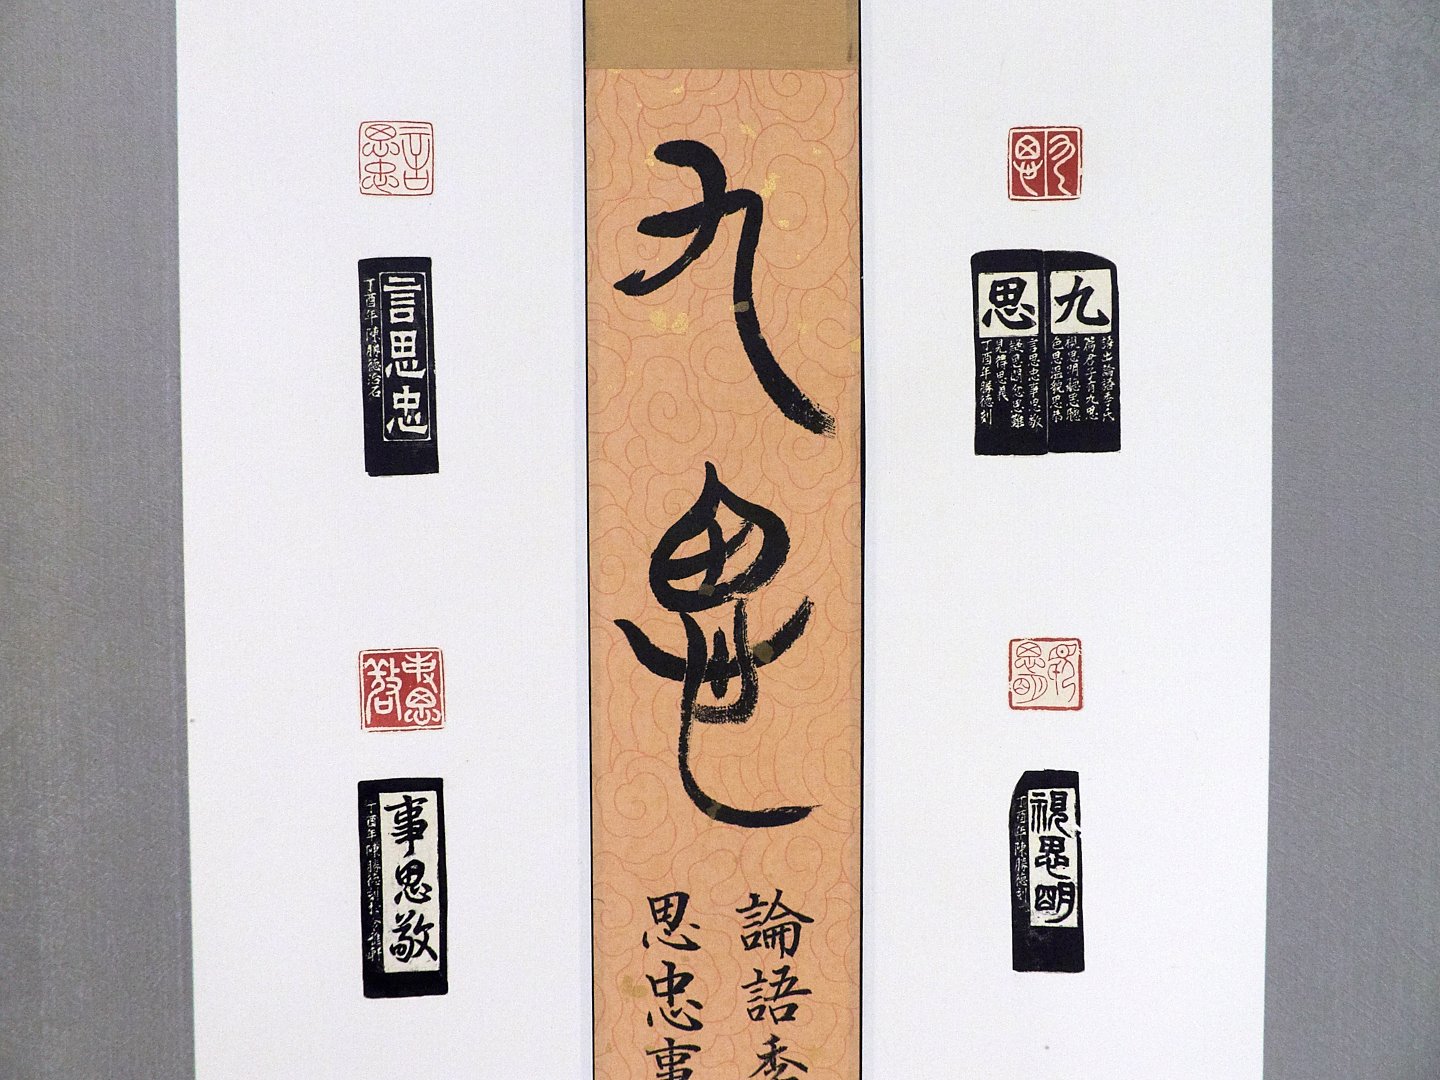 九思
論語季
思忠事
九思
九
語出論語季氏
篇君子有九思
視思明聽思聰
色思溫貌思恭
思
言思忠事思敬
疑思問忿思難
見得思義
丁酉年勝德刻
視思明
視思明
丁酉年陳勝德刻
言思忠
言思忠
丁酉年陳勝德治石
事思敬
事思敬
丁酉年陳勝德刻於
軒